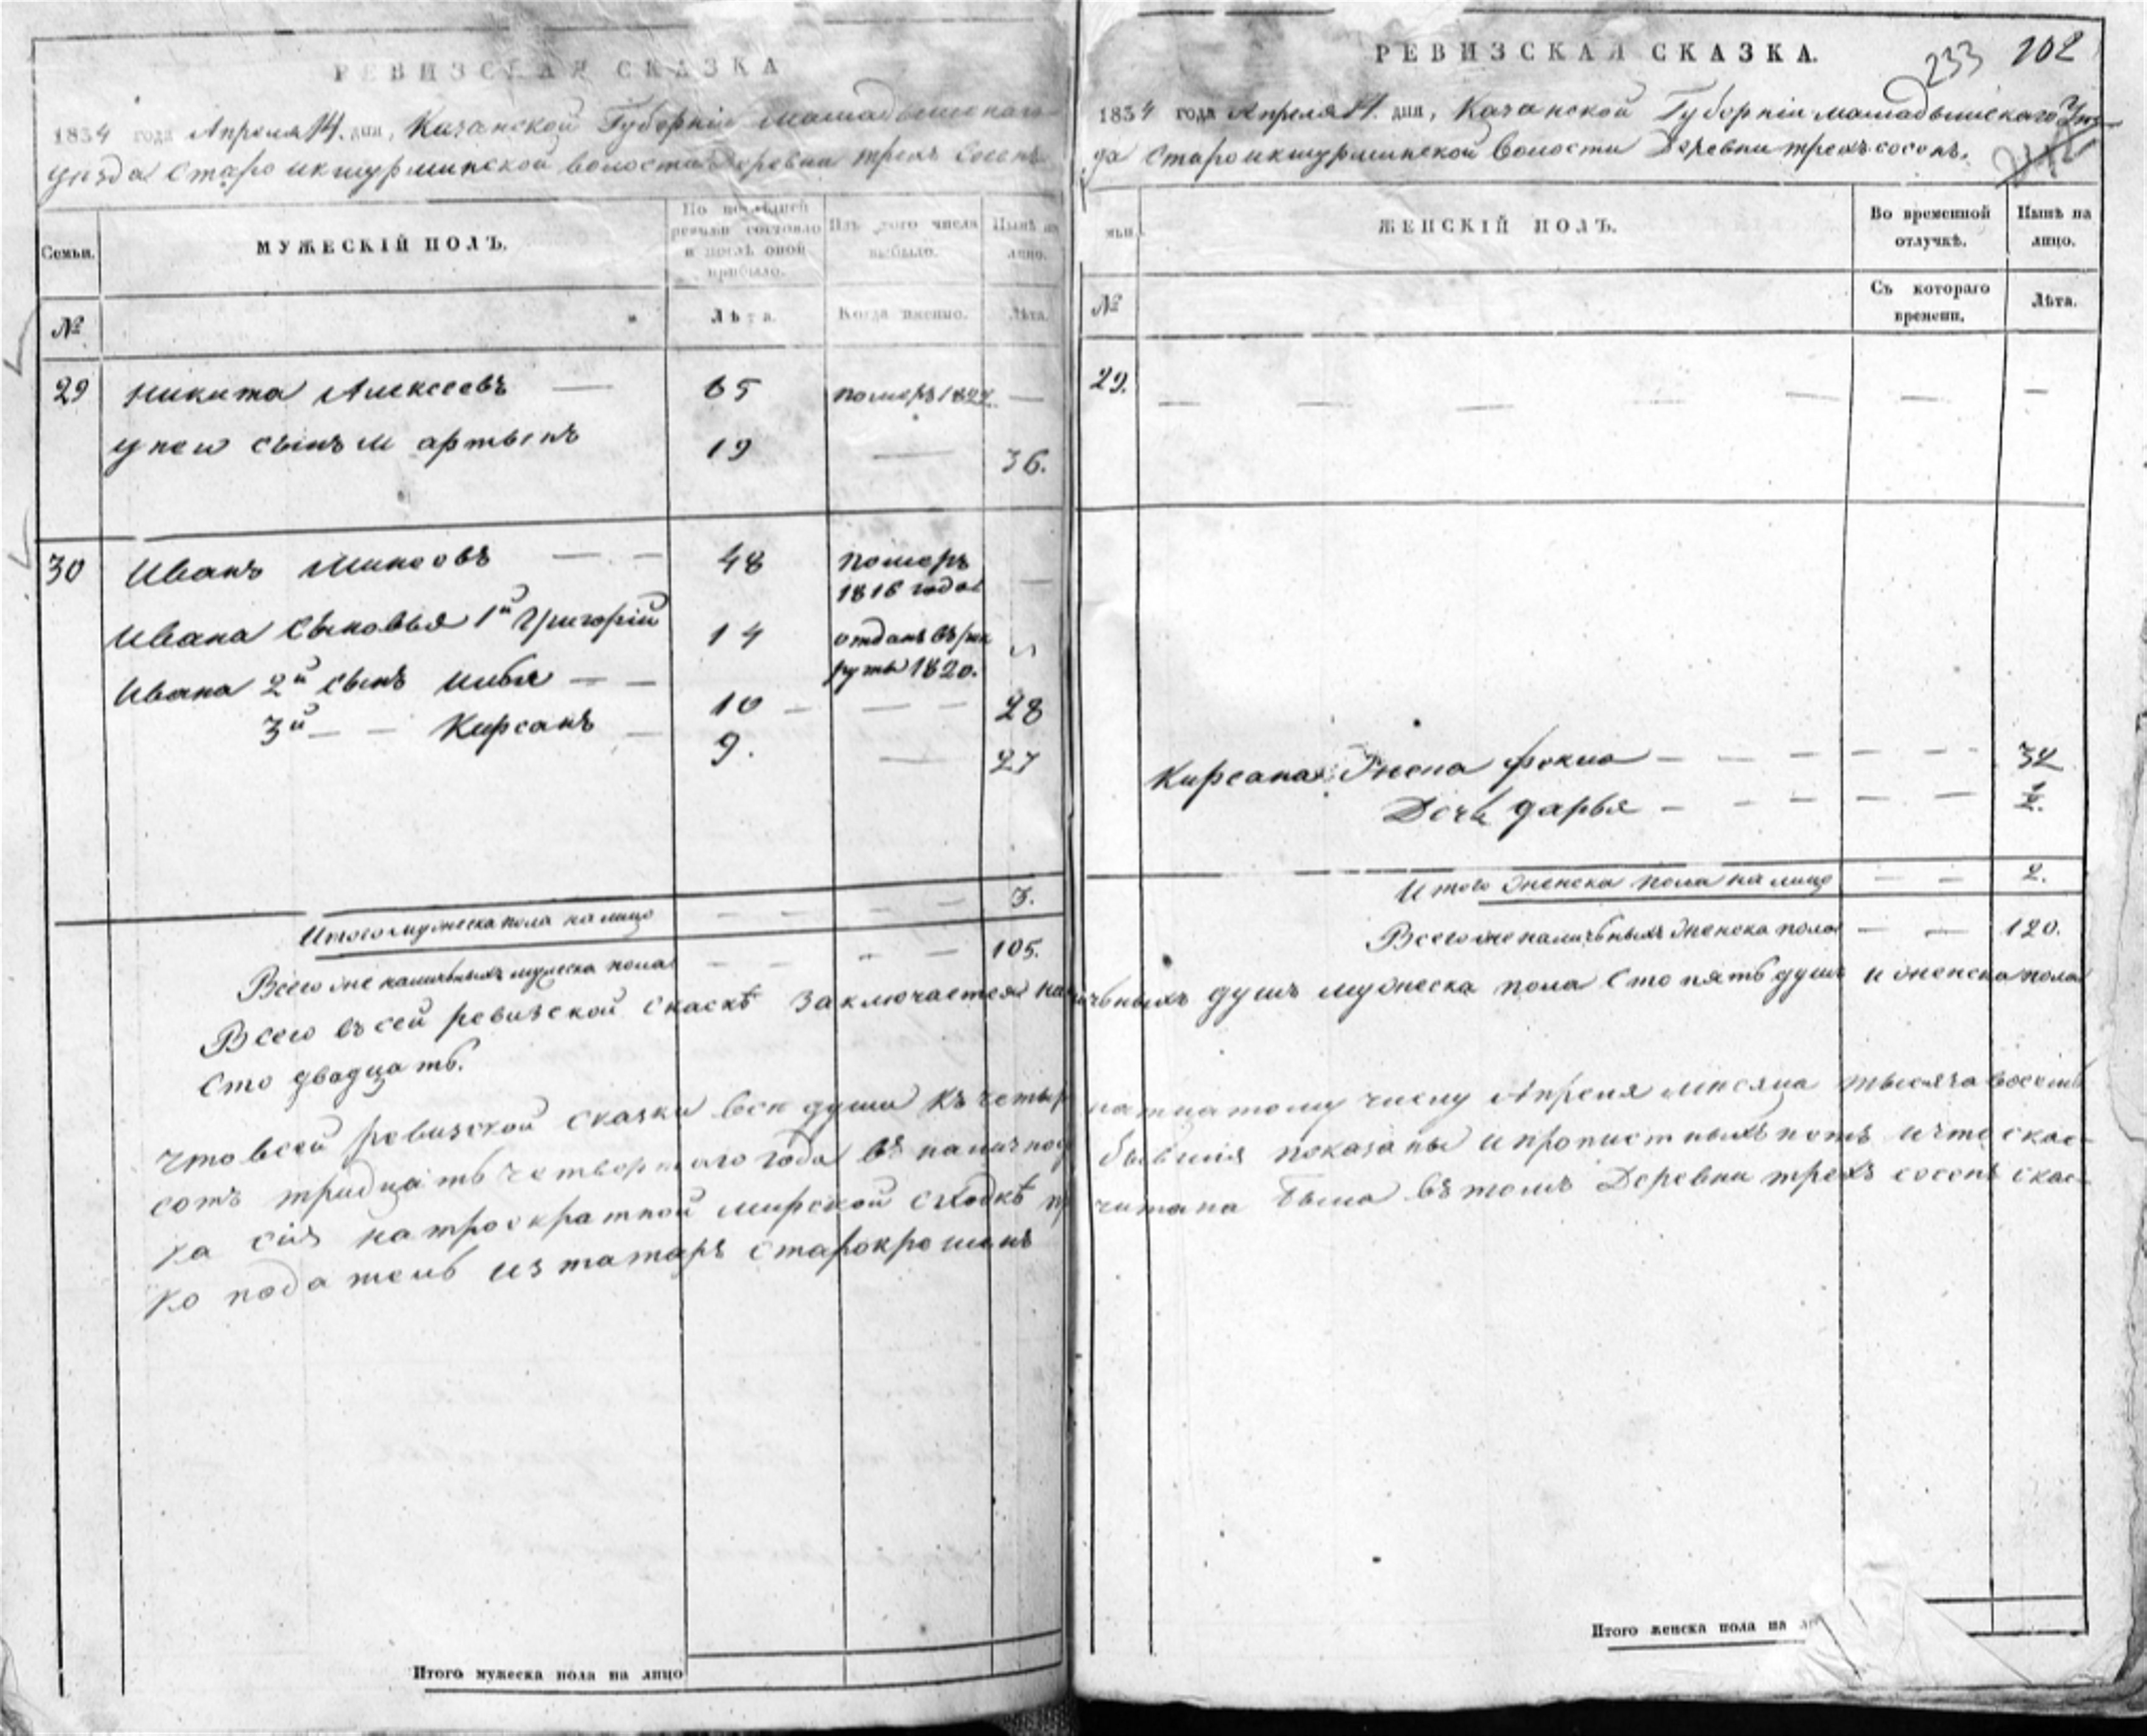 РЕВИЗСКАЯ СКАЗКА
1834 года Апреля 14. дня, Казанской Губерніи мамадышскаго
уезда Староикшурминской волости Деревни трехъ сосенъ
Семьи.
МУЖЕСКІЙ ПОЛЪ.
По последней ревизіи состояло и послѣ оной прибыло.
Изъ того числа выбыло.
Нынѣ на лицо.
№
Лѣта.
Когда именно.
Лѣта.
29 никита Алексеевъ — 65 померъ —
у нево сынъ мартынъ 19 — 36.
30 Иванъ — — 48 померъ —
1816 года
Ивана сыновья 1й Григорій 14 отданъ въ рек
руты 1820.
Ивана 2й сынъ — — 10 — — — 28
3й — — Кирсанъ — 9. — 27
Итого мужеска пола на лицо — — — — 3.
Всего мужеска пола — — — — 105.
Всего въ сей ревизской скаскѣ заключается
сто двадцать.
что всей ревизской сказки все души къ четыр
сотъ тридцать четвертаго года въ
ка сія на троекратной мирской сходкѣ пр
ко податель из татаръ старокрошенъ
Итого мужеска пола на лицо
РЕВИЗСКАЯ СКАЗКА.
233 102
1834 года Апреля 14. дня, Казанской Губерніи мамадышскаго Уез
да Староикшурминской волости Деревни трехъ сосенъ.
ЖЕНСКІЙ ПОЛЪ.
Во временной отлучкѣ.
Нынѣ на лицо.
№
Съ котораго времени.
Лѣта.
29. — — — — — — — —
Кирсана жена фекла — — — — — — 32
Дочь дарья — — — — — — 1/2.
Итого женска пола на лицо — — 2.
Всего женска пола — — 120.
душъ мужеска пола сто пять душъ и женска пола
натцатому числу Апреля месяца тысяча восемь
бывшія показаны и прописныхъ нетъ и что скас-
читана была въ томъ Деревни трехъ сосенъ скас-
Итого женска пола на